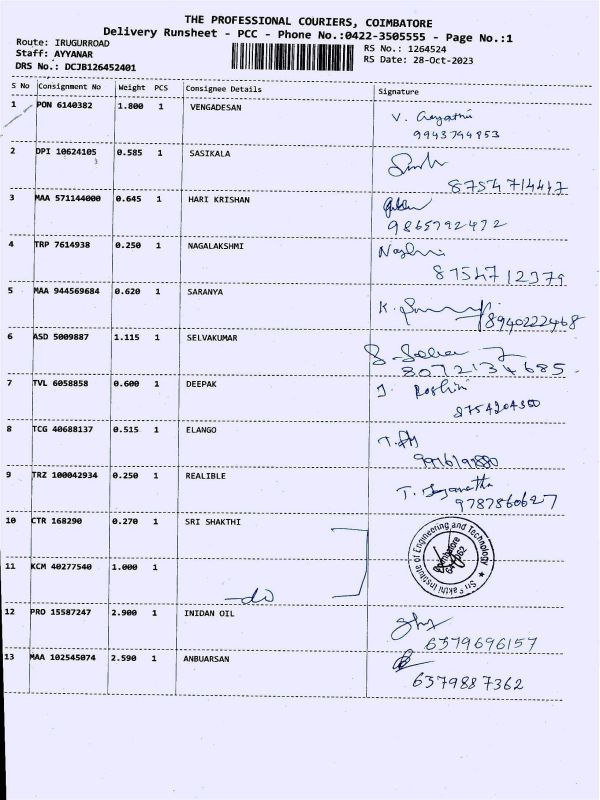 THE PROFESSIONAL COURIERS, COIMBATORE
Delivery Runsheet - PCC - Phone No.:0422-3505555 - Page No.:1
Route: IRUGURROAD RS No.: 1264524
Staff: AYYANAR RS Date: 28-Oct-2023
DRS No.: DCJB126452401
S No Consignment No Weight PCS Consignee Details Signature
1 PON 6140382 1.800 1 VENGADESAN
V. Gayathri
9943794953
2 DPI 10624105 0.585 1 SASIKALA
8754714447
3 MAA 571144000 0.645 1 HARI KRISHAN
9865792472
4 TRP 7614938 0.250 1 NAGALAKSHMI
8754712379
5 MAA 944569684 0.620 1 SARANYA
K.
8940222468
6 ASD 5009887 1.115 1 SELVAKUMAR
8072134685
7 TVL 6058858 0.600 1 DEEPAK
J. Roshini
8754204300
8 TCG 40688137 0.515 1 ELANGO
9 TRZ 100042934 0.250 1 REALIBLE
9787860627
10 CTR 168290 0.270 1 SRI SHAKTHI
Sri Shakthi Institute of Engineering and Technology
Coimbatore
11 KCM 40277540 1.000 1
do
12 PRO 15587247 2.900 1 INIDAN OIL
6379696157
13 MAA 102545074 2.590 1 ANBUARSAN
6379887362